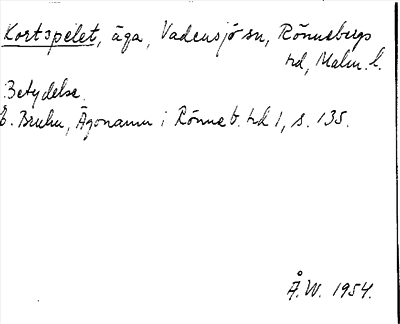 Kortspelet, äga, Vadensjö sn, Rönnebergs
hd, Malm. l.
Betydelse.
E. Bruhn, Ägonamn i Rönneb. hd 1, s. 135.
Å.W. 1954.